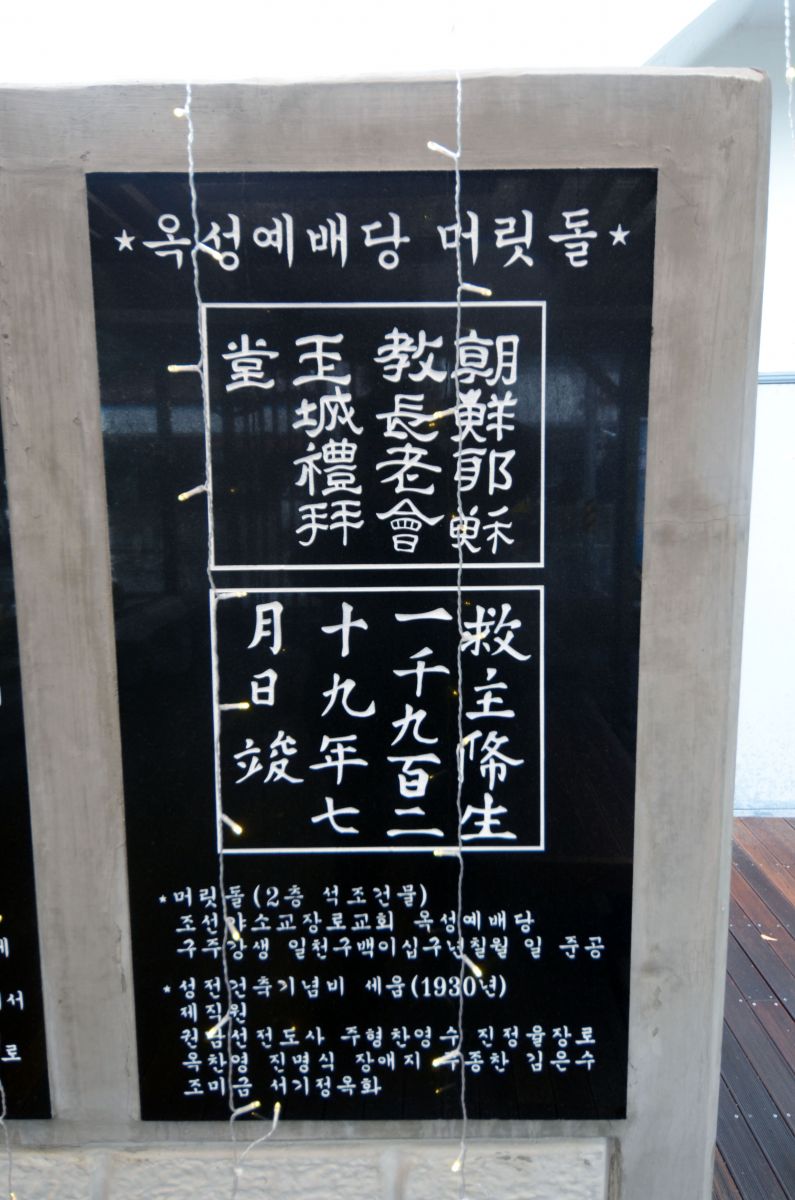 ★옥성예배당 머릿돌★
朝鮮耶穌
教長老會
王城禮拜
堂
救主降生
一千九百二
十九年七
月日 竣
★머릿돌(2층 석조건물)
조선야소교장로교회 옥성예배당
구주강생 일천구백이십구년칠월 일 준공
★성전건축기념비 세움(1930년)
제직원
주형찬영수 진정율장로
옥찬영 진명식 장애지 주종찬 김은수
조미금 서기정옥화